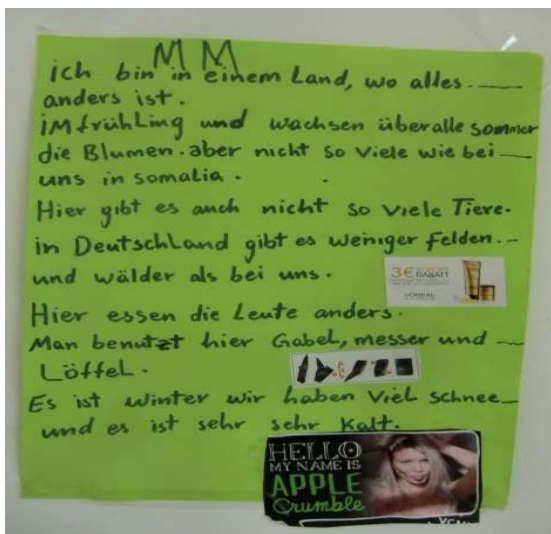 MM
ich bin in einem Land, wo alles
anders ist.
iM frühLing und wachsen überalle sommer
die Blumen. aber nicht so viele wie bei
uns in somalia.
Hier gibt es auch nicht so viele Tiere.
in DeutschLand gibt es weniger felden.
und wälder als bei uns.
3€ RABATT
Hier essen die Leute anders.
Man benutzt hier Gabel, messer und
LöffeL.
Es ist winter wir haben vieL schnee
und es ist sehr sehr kalt.
HELLO
MY NAME IS
APPLE
Crumble